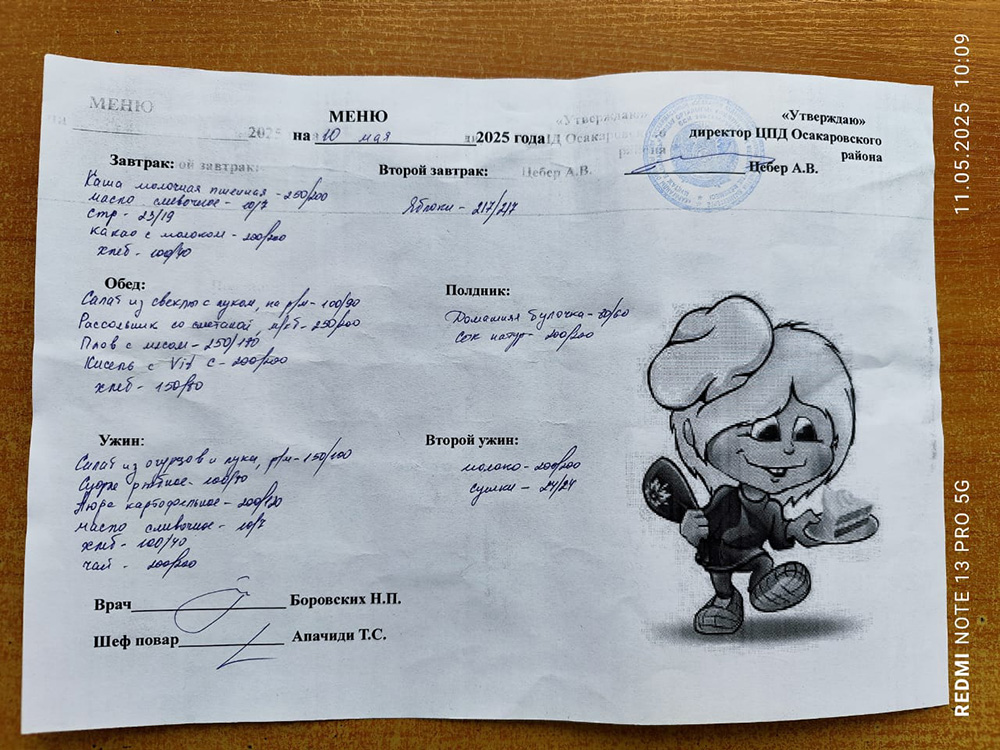 МЕНЮ
на 10 мая 2025 года
«Утверждаю»
директор ЦПД Осакаровского
района
Цебер А.В.
Завтрак:
Каша молочная пшенная - 250/200
масло сливочное - 10/7
сыр - 23/19
какао с молоком - 200/200
хлеб - 100/40
Второй завтрак:
Яблоки - 217/217
Обед:
Салат из свеклы с луком, на р/м - 100/90
Рассольник со сметаной, - 250/200
Плов с мясом - 250/190
Кисель с Vit C - 200/200
хлеб - 150/80
Полдник:
Домашняя булочка - 80/60
Сок натур - 200/200
Ужин:
Салат из огурцов и лука, р/м - 150/100
Суфле рыбное - 100/70
Пюре картофельное - 200/130
масло сливочное - 10/7
хлеб - 100/40
чай - 200/200
Второй ужин:
молоко - 200/200
сушки - 24/24
Врач Боровских Н.П.
Шеф повар Апачиди Т.С.
МЕНЮ
2025
завтрак:
«Утверждаю»
Осакаровс
района
Цебер А.В.
REDMI NOTE 13 PRO 5G
11.05.2025 10:09